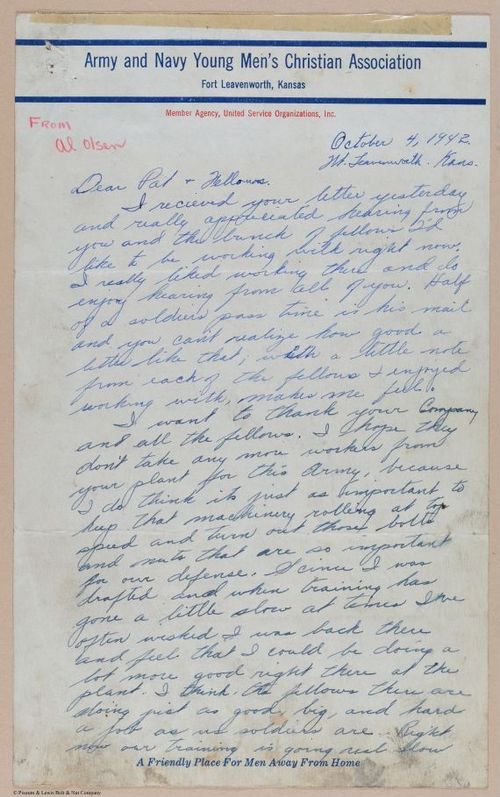 Army and Navy Young Men's Christian Association
Fort Leavenworth, Kansas
Member Agency, United Service Organizations, Inc.
FROM
Al Olsen
October 4, 1942.
Ft. Leavenworth. Kans.
Dear Pat & Fellows.
I recieved your letter yesterday
and really appreciated hearing from
you and the bunch of fellows I'd
like to be working with right now.
I really liked working there and do
enjoy hearing from all of you. Half
of a soldiers pass time is his mail
and you cant realize how good a
letter like that, with a little note
from each of the fellows I enjoyed
working with, makes me feel.
I want to thank your Company
and all the fellows. I hope they
don't take any more workers from
your plant for this Army, because
I do think its just as important to
keep that machinery rolling at top
speed and turn out those bolts
and nuts that are so important
for our defense. Scince I was
drafted and when training has
gone a little slow at times I've
often wished I was back there
and feel that I could be doing a
lot more good right there at the
plant. I think the fellows there are
doing just as good, big, and hard
a job as us soldiers are. Right
now our training is going real slow
A Friendly Place For Men Away From Home
© Pioneers & Lewis Bolt & Nut Company